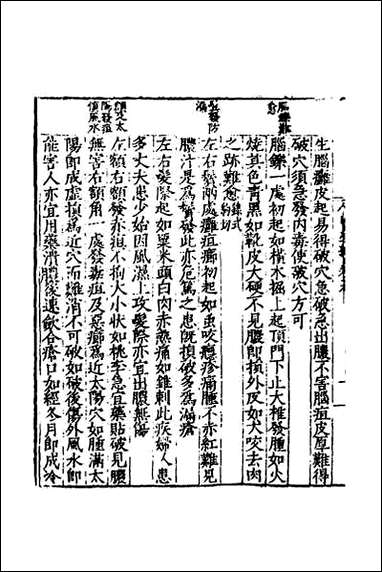 生腦癰皮起易得破穴急破忌出膿不害腦疽皮厚難得
破穴須急發內毒使破穴方可
腦鑠一處初起如橫木掘上起頂門下止大椎發腫如火
燒其色青黑如靴皮大硬不見膿即損外皮如犬咬去肉
之跡難愈
左右鬢兩處癰疽癤初起如虫咬癮疹痛腫不赤紅難見
膿汁是為鬢發此亦危篤之患既損破多為漏瘡
左右髮際起如粟米頭白肉赤熱痛如錐刺此疾婦人患
多丈夫患少始因風濕上攻髮際亦宜出膿無傷
左額右額發亦疽不拘大小狀如桃李急宜藥貼破見膿
無害右額角一處發毒疽及惡癤為近太陽穴如腫滿太
陽即成虛損為近穴而難消不可破如破後傷外風水即
能害人亦宜用藥消膿後速歛合瘡口如經冬月即成冷
腦鑠難愈
鬢發防漏
風水